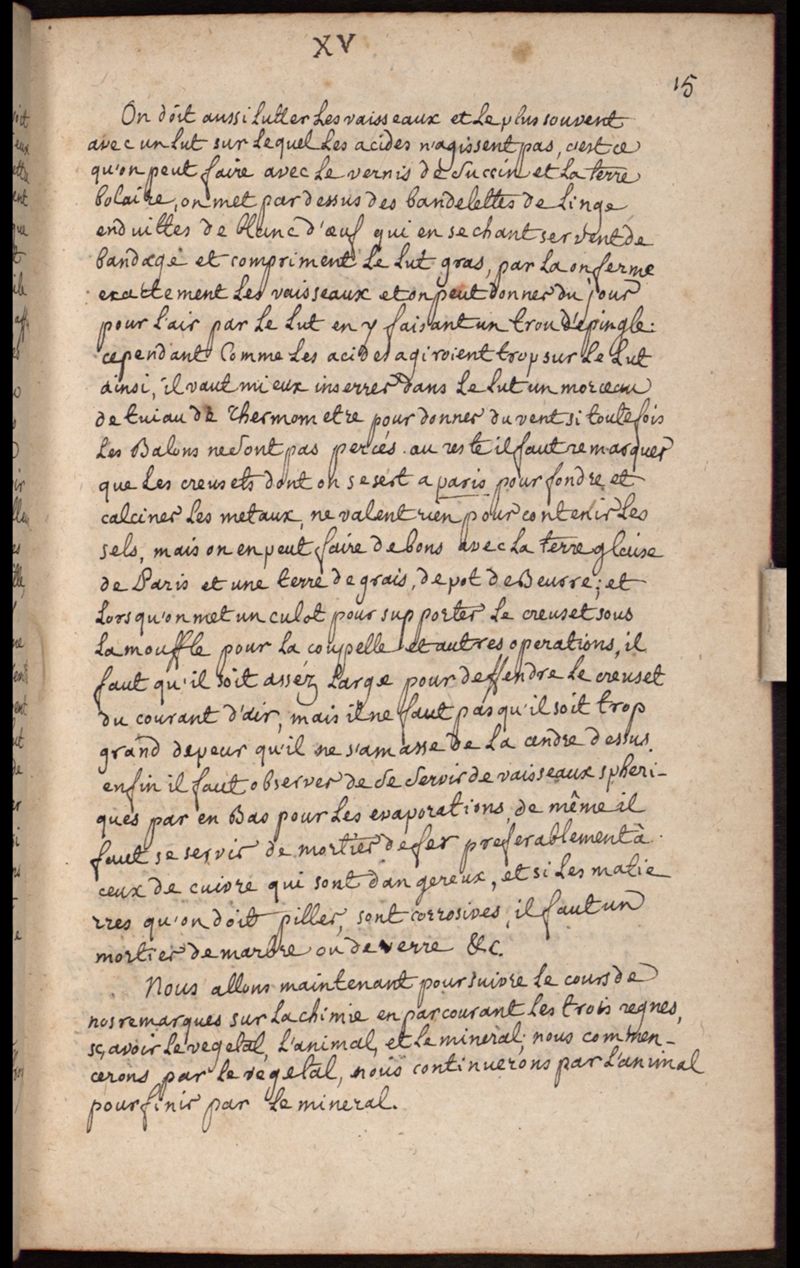 XV
15
On doit aussi lutter les vaisseaux et le plus souvent
avec un lut sur lequel les acides n'agissent pas, c'est ce
qu'on peut faire avec le vernis de succin et la terre
bolaire, on met par dessus des bandelettes de linge
enduittes de blanc d'œuf qui en sechant servent de
bandage et compriment le lut gras, par la on ferme
exactement les vaisseaux et on peut donner du jour
pour l'air par le lut en y faisant un trou d'epingle:
cependant Comme les acides agiroient trop sur le lut
ainsi, il vaut mieux inserrer dans le lut un morceau
de tuiau de Thermometre pour donner du vent si toutefois
les Balons ne sont pas percés. au reste il faut remarquer
que les creusets dont on se sert a paris pour fondre et
calciner les metaux, ne valent rien pour contenir les
sels, mais on en peut faire de bons avec la terre glaise
de Paris et une terre de grais, de pot de Beurre; et
lorsqu'on met un culot pour supporter le creuset sous
la mouffle pour la coupelle et autres operations, il
faut qu'il soit asséz large pour deffendre le creuset
du courant d'air, mais il ne faut pas qu'il soit trop
grand de peur qu'il ne s'amasse de la cendre dessus.
enfin il faut observer de se servir de vaisseaux spheri-
ques par en Bas pour les evaporations, de même il
faut se servir de mortier de fer preferablement à
ceux de cuivre qui sont dangereux, et si les matie
rres qu'on doit piller, sont corrosives, il faut un
mortier de marbre ou de verre &c.
Nous allons maintenant poursuivre le cours de
nos remarques sur la chimie en parcourant les trois regnes,
sçavoir le vegetal, l'animal, et le mineral; nous commen-
cerons par le vegetal, nous continuerons par l'animal
pour finir par le mineral.